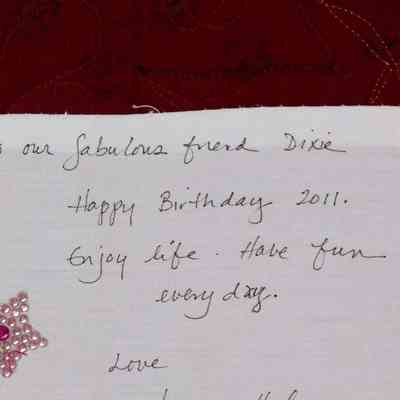 our fabulous friend Dixie
Happy Birthday 2011.
Enjoy life. Have fun
every day.
Love